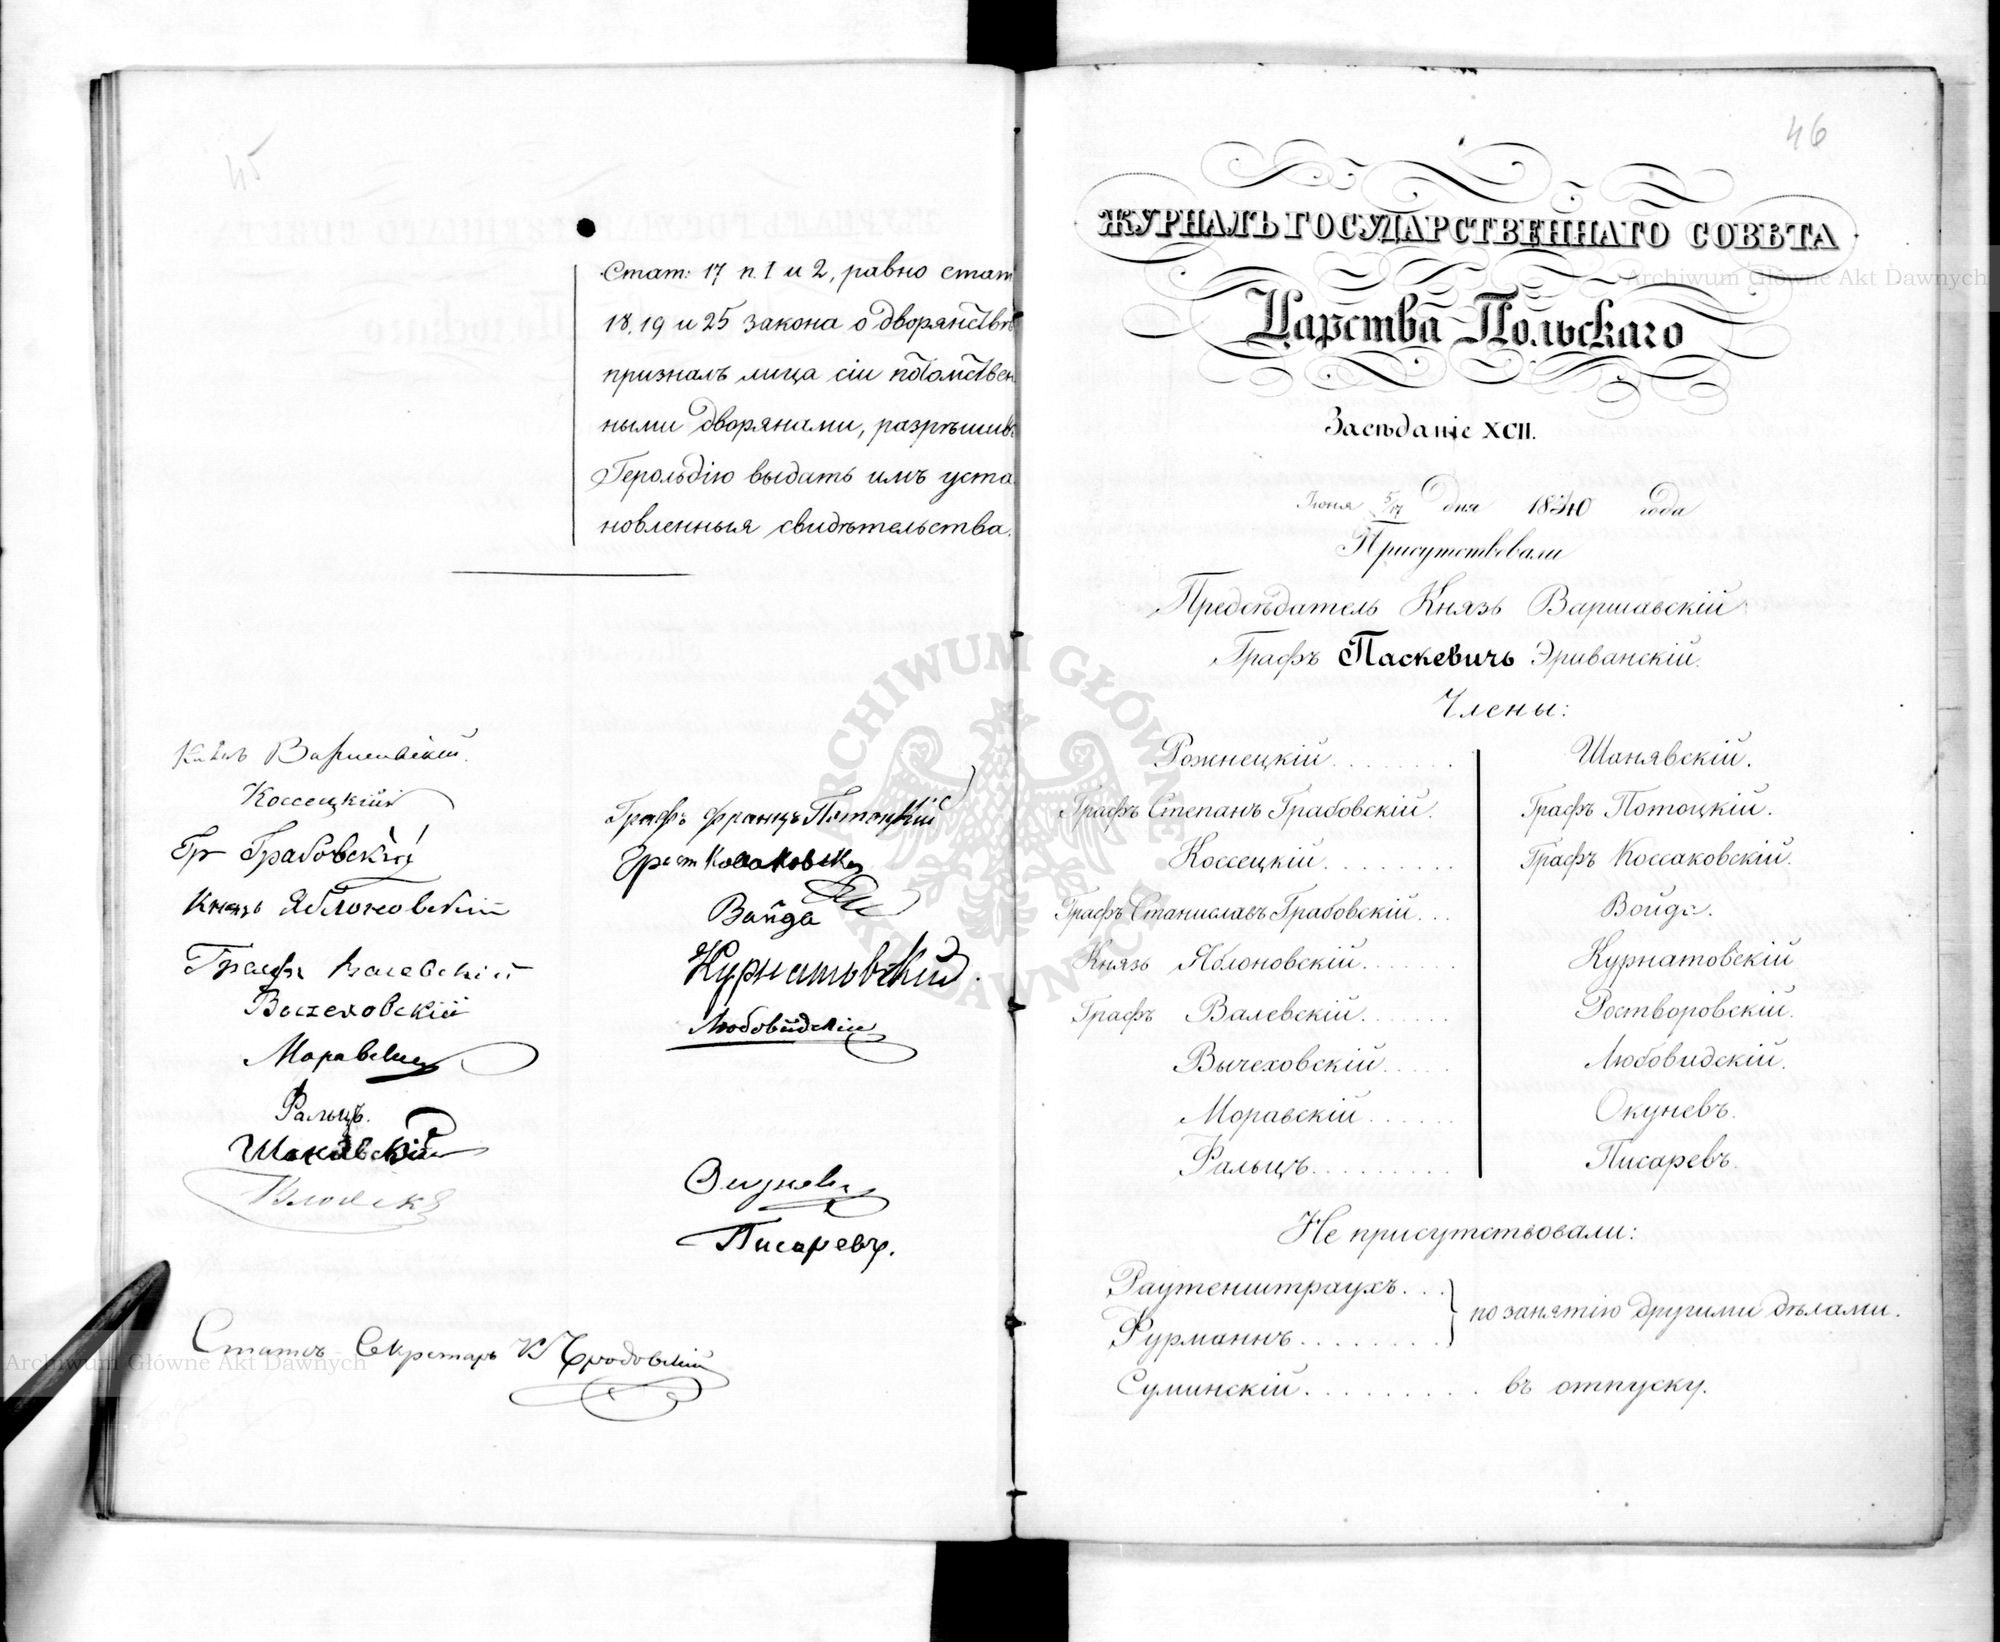 45
Стат: 17 п. 1 и 2, равно стат
18, 19 и 25 закона о дворянствѣ
призналъ лица сіи потомствен
ными дворянами, разрѣшивъ
Герольдію выдать имъ уста
новленныя свидѣтельства.
Князь Варшавскій.
Коссецкій
Гр Грабовскій
Князь Яблоновскій
Графъ Валевскій
Вычеховскій
Моравскій
Фальцъ.
Шанявскій
Графъ Францъ Потоцкій
Войда
Курнатовскій.
Любовидскій
Окуневъ
Писаревъ.
Статсъ Секретарь
46
ЖУРНАЛЪ ГОСУДАРСТВЕННАГО СОВѢТА
Царства Польскаго
Засѣданіе XCII.
Іюня 5/17 дня 1840 года
Присутствовали
Предсѣдатель Князь Варшавскій
Графъ Паскевичъ Эриванскій.
Члены:
Рожнецкій........
Графъ Степанъ Грабовскій.
Коссецкій........
Графъ Станиславъ Грабовскій...
Князь Яблоновскій.......
Графъ Валевскій.......
Вычеховскій.....
Моравскій......
Фальцъ.........
Шанявскій.
Графъ Потоцкій.
Графъ Коссаковскій.
Войда.
Курнатовскій
Ростворовскій.
Любовидскій.
Окуневъ.
Писаревъ.
Не присутствовали:
Раутенштраухъ...
Фурманнъ........
по занятію другими дѣлами.
Суминскій......... въ отпуску.
ARCHIWUM GŁÓWNE AKT DAWNYCH
Archiwum Główne Akt Dawnych
Archiwum Główne Akt Dawnych